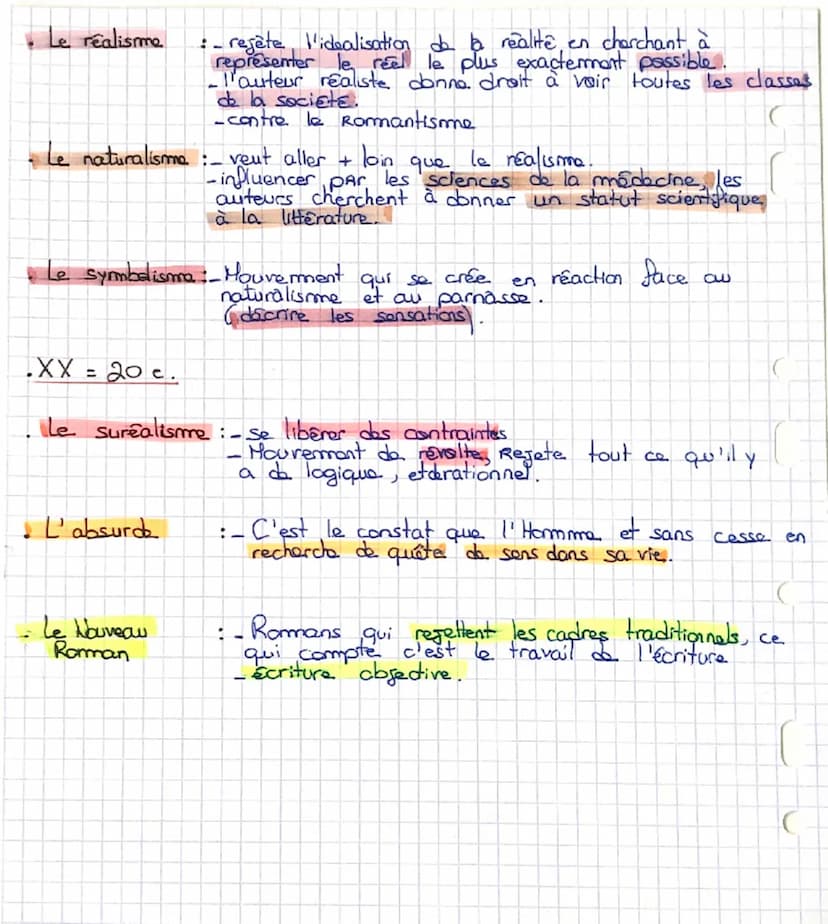 . Le réalisme : - rejète l'idealisation de la réalité, en cherchant à
représenter le réel le plus exactemment possible.
- l'auteur réaliste donne droit à voir toutes les classes
de la societé.
- contre le Rommantisme
. Le naturalisme : - veut aller + loin que le réalisme.
- influencer par les sciences de la médecine, les
auteurs cherchent à donner un statut scientifique,
à la littérature.
. Le symbolisme : - Mouvement qui se crée en réaction face au
naturalisme et au parnasse.
(décrire les sensations).
. XX = 20 e.
. Le suréalisme : - se libérer des contraintes
- Mouvement de révolte, Rejete tout ce qu'il y
a de logique, et de rationnel.
. L'absurde : - C'est le constat que l'Homme et sans cesse en
recherche de quête de sens dans sa vie.
- Le Nouveau : - Romans qui rejettent les cadres traditionnels, ce
Roman qui compte c'est le travail de l'écriture
- écriture objective.